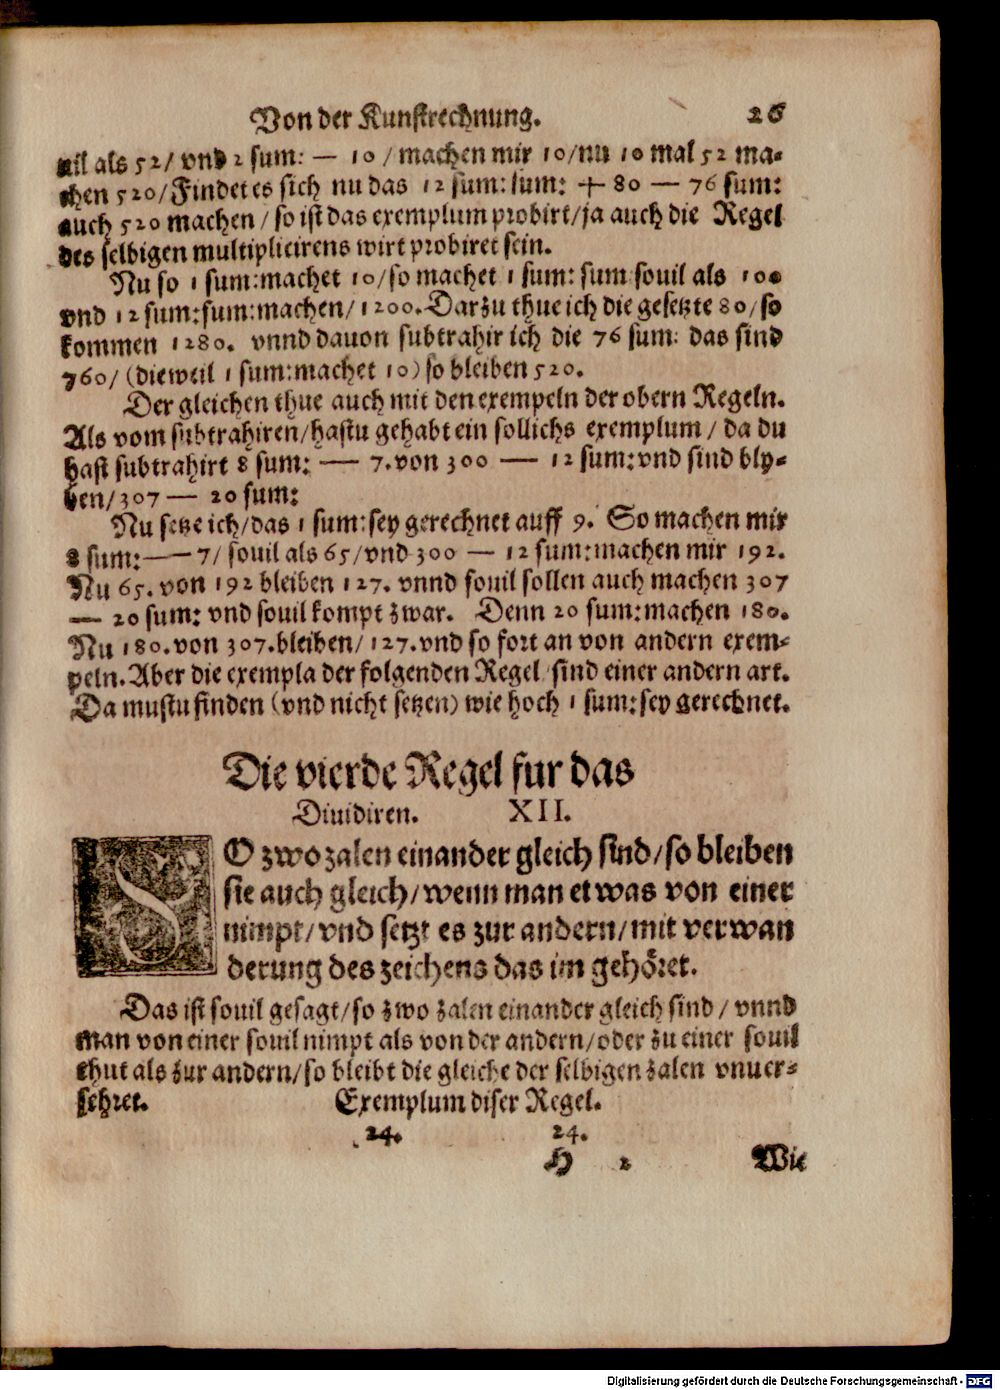 Von der Kunstrechnung. 26
uil als 52/ vnd 2 sum: — 10 / machen mir 10/nu 10 mal 52 ma-
chen 520/Findet es sich nu das 12 sum: sum: + 80 — 76 sum:
auch 520 machen / so ist das exemplum probirt/ja auch die Regel
des selbigen multiplicirens wirt probiret sein.
Nu so 1 sum:machet 10/so machet 1 sum: sum souil als 100
vnd 12 sum:sum:machen/1200. Darzu thue ich die gesetzte 80/so
kommen 1280. vnnd dauon subtrahir ich die 76 sum: das sind
760/ (dieweil 1 sum:machet 10) so bleiben 520.
Der gleichen thue auch mit den exempeln der obern Regeln.
Als vom subtrahiren/hastu gehabt ein sollichs exemplum / da du
hast subtrahirt 8 sum: — 7. von 300 — 12 sum:vnd sind bly-
ben/307 — 20 sum:
Nu setze ich/das 1 sum:sey gerechnet auff 9. So machen mir
8 sum:— 7/ souil als 65/vnd 300 — 12 sum:machen mir 192.
Nu 65. von 192 bleiben 127. vnnd souil sollen auch machen 307
— 20 sum: vnd souil kompt zwar. Denn 20 sum:machen 180.
Nu 180.von 307.bleiben/127.vnd so fort an von andern exem-
peln. Aber die exempla der folgenden Regel sind einer andern art.
Da mustu finden (vnd nicht setzen) wie hoch 1 sum:sey gerechnet.
Die vierde Regel fur das
Diuidiren. XII.
SO zwo zalen einander gleich sind/so bleiben
sie auch gleich/wenn man etwas von einer
nimpt/vnd setzt es zur andern/mit verwan
derung des zeichens das im gehöret.
Das ist souil gesagt/so zwo zalen einander gleich sind / vnnd
man von einer souil nimpt als von der andern/oder zu einer souil
thut als zur andern/so bleibt die gleiche der selbigen zalen vnuer-
sehret. Exemplum diser Regel.
24. 24.
H 2 Wie
Digitalisierung gefördert durch die Deutsche Forschungsgemeinschaft - DFG